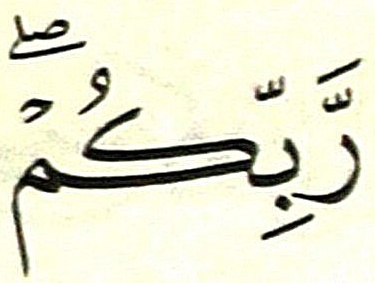 رَّبِّكُمۡۖ